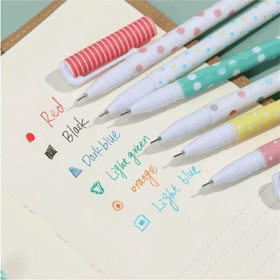 Red
Black
Dark-blue
Light green
orange
Light blue